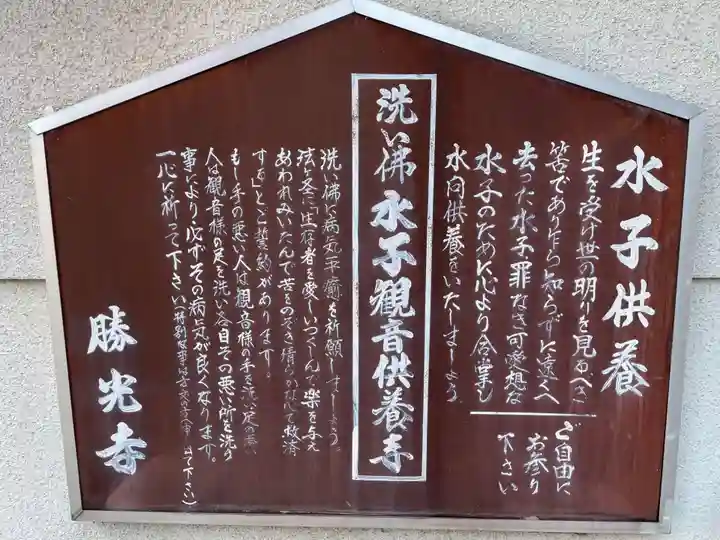 水子供養
生を受け世の明りを見るべき
筈であり乍ら知らずに遠くへ
去った水子罪なき可愛想な
水子のために心より合掌し
水向供養をいたしましょう
ご自由に
お参り
下さい
洗い佛水子観音供養寺
洗い佛に病気平癒を祈願しましょう。
法に衆生存者を愛しいつくしんで楽を与え
あわれみいたんで苦をのぞき
するとご誓約があります。
もし手の悪い人は観音様の手を洗い足の悪い
人は観音様の足を洗い各自その悪い所を洗う
事により必ずその病気が良くなります。
一心に祈って下さい
勝光寺